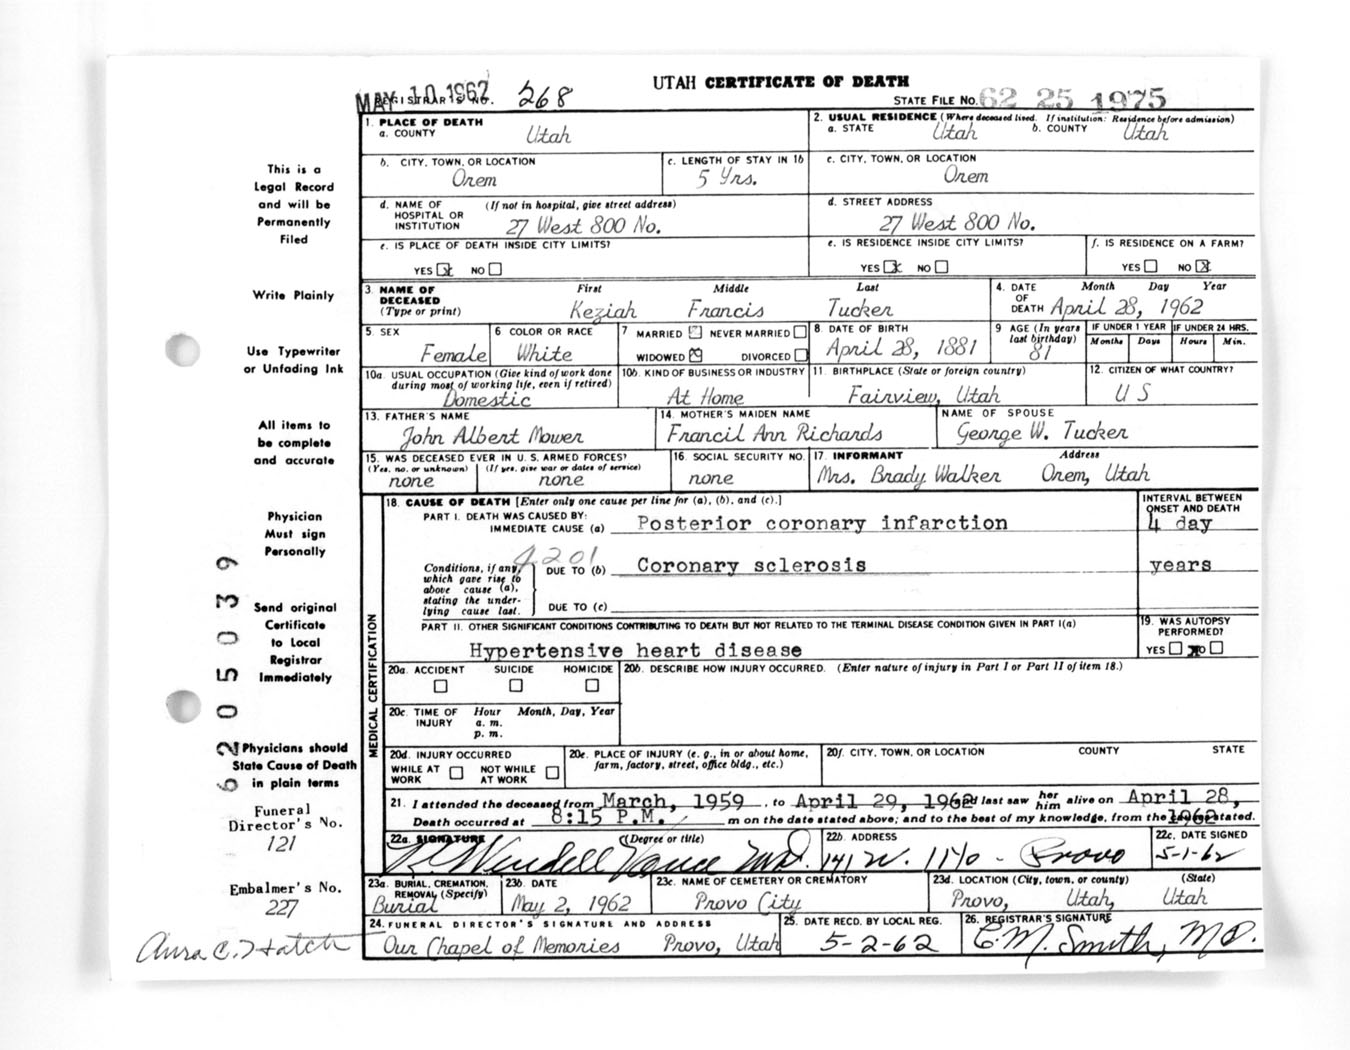 UTAH CERTIFICATE OF DEATH
MAY 10 1962
REGISTRAR'S NO. 268
STATE FILE NO. 62 25 1975
1. PLACE OF DEATH
a. COUNTY Utah
2. USUAL RESIDENCE (Where deceased lived. If institution: Residence before admission)
a. STATE Utah b. COUNTY Utah
b. CITY, TOWN, OR LOCATION Orem
c. LENGTH OF STAY IN 1b 5 Yrs.
c. CITY, TOWN, OR LOCATION Orem
d. NAME OF HOSPITAL OR INSTITUTION (If not in hospital, give street address) 27 West 800 No.
d. STREET ADDRESS 27 West 800 No.
e. IS PLACE OF DEATH INSIDE CITY LIMITS?
YES x NO
e. IS RESIDENCE INSIDE CITY LIMITS?
YES x NO
f. IS RESIDENCE ON A FARM?
YES NO x
3. NAME OF DECEASED (Type or print) First Middle Last
Keziah Francis Tucker
4. DATE OF DEATH Month Day Year
April 28, 1962
5. SEX Female
6 COLOR OR RACE White
7 MARRIED NEVER MARRIED
WIDOWED x DIVORCED
8. DATE OF BIRTH April 28, 1881
9 AGE (In years last birthday) 81
IF UNDER 1 YEAR Months Days
IF UNDER 24 HRS. Hours Min.
10a. USUAL OCCUPATION (Give kind of work done during most of working life, even if retired) Domestic
10b. KIND OF BUSINESS OR INDUSTRY At Home
11. BIRTHPLACE (State or foreign country) Fairview, Utah
12. CITIZEN OF WHAT COUNTRY? U S
13. FATHER'S NAME John Albert Mower
14. MOTHER'S MAIDEN NAME Francil Ann Richards
NAME OF SPOUSE George W. Tucker
15. WAS DECEASED EVER IN U. S. ARMED FORCES?
(Yes, no, or unknown) none (If yes, give war or dates of service) none
16. SOCIAL SECURITY NO. none
17. INFORMANT Address
Mrs. Brady Walker Orem, Utah
18. CAUSE OF DEATH [Enter only one cause per line for (a), (b), and (c).]
INTERVAL BETWEEN ONSET AND DEATH
PART I. DEATH WAS CAUSED BY:
IMMEDIATE CAUSE (a) Posterior coronary infarction 4 day
4201
Conditions, if any, which gave rise to above cause (a), stating the underlying cause last.
DUE TO (b) Coronary sclerosis years
DUE TO (c)
PART II. OTHER SIGNIFICANT CONDITIONS CONTRIBUTING TO DEATH BUT NOT RELATED TO THE TERMINAL DISEASE CONDITION GIVEN IN PART I(a)
Hypertensive heart disease
19. WAS AUTOPSY PERFORMED?
YES NO x
MEDICAL CERTIFICATION
20a. ACCIDENT SUICIDE HOMICIDE
20b. DESCRIBE HOW INJURY OCCURRED. (Enter nature of injury in Part I or Part II of item 18.)
20c. TIME OF INJURY Hour a. m. p. m. Month, Day, Year
20d. INJURY OCCURRED
WHILE AT WORK NOT WHILE AT WORK
20e. PLACE OF INJURY (e. g., in or about home, farm, factory, street, office bldg., etc.)
20f. CITY, TOWN, OR LOCATION COUNTY STATE
21. I attended the deceased from March, 1959, to April 29, 1962 and last saw her him alive on April 28, 1962
Death occurred at 8:15 P.M. m on the date stated above; and to the best of my knowledge, from the causes stated.
22a. SIGNATURE (Degree or title)
R. Wendell Vance M.D.
22b. ADDRESS 141 W. 11 No - Provo
22c. DATE SIGNED 5-1-62
23a. BURIAL, CREMATION, REMOVAL (Specify) Burial
23b. DATE May 2, 1962
23c. NAME OF CEMETERY OR CREMATORY Provo City
23d. LOCATION (City, town, or county) (State)
Provo, Utah, Utah
24. FUNERAL DIRECTOR'S SIGNATURE AND ADDRESS
Our Chapel of Memories Provo, Utah
25. DATE RECD. BY LOCAL REG. 5-2-62
26. REGISTRAR'S SIGNATURE
E. M. Smith, M D.
This is a
Legal Record
and will be
Permanently
Filed
Write Plainly
Use Typewriter
or Unfading Ink
All items to
be complete
and accurate
Physician
Must sign
Personally
Send original
Certificate
to Local
Registrar
Immediately
Physicians should
State Cause of Death
in plain terms
Funeral
Director's No.
121
Embalmer's No.
227
Aura C. Hatch